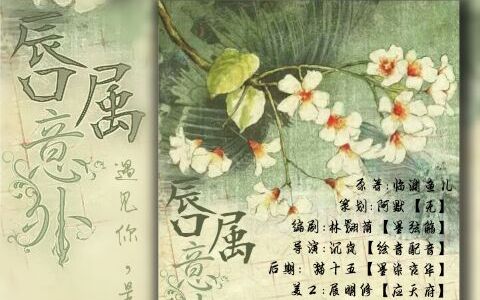 唇属意外
遇见你，是
唇属意外
原著:临渊鱼儿
策划:阿默【无】
编剧:林翙蒲【墨弦觞】
导演:沉岚【绘音配音】
后期:翰十五【墨染霓华】
美工:展明修【应天府】